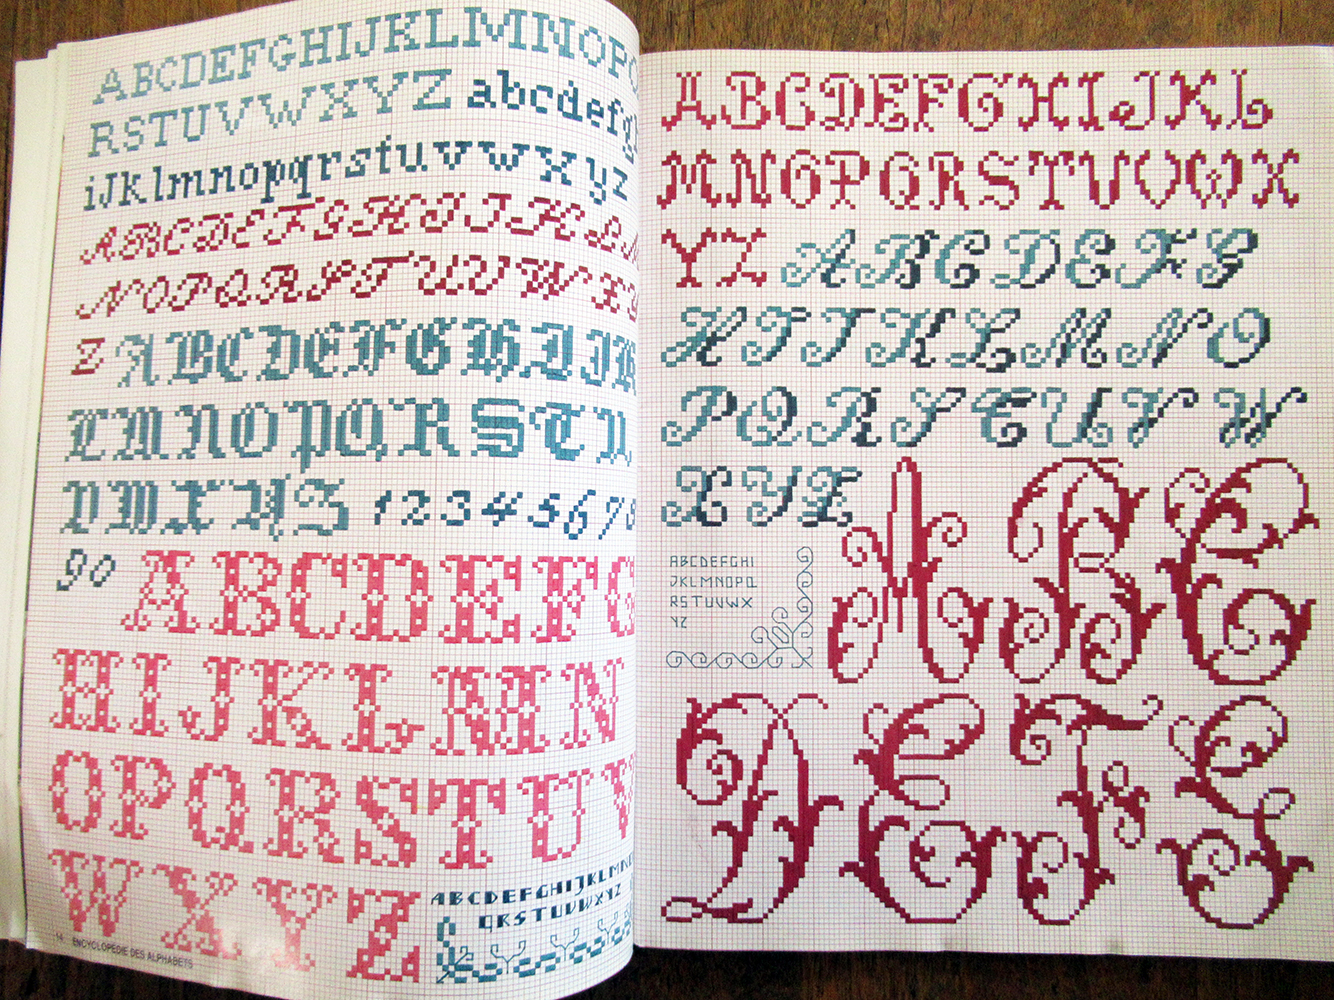 ABCDEFGHIJKLMNOPQ
RSTUVWXYZ abcdefgh
iJklmnopqrstuvwxyz
ABCDEFGHIJKLM
NOPQRSTUVWXY
Z ABCDEFGHIJK
LMNOPQRSTU
VWXYZ 12345678
90 ABCDEFG
HIJKLMN
OPQRSTUV
WXYZ
ABCDEFGHIJKLMNO
QRSTUVWXYZ
14 ENCYCLOPEDIE DES ALPHABETS
ABCDEFGHIJKL
MNOPQRSTUVWX
YZ ABCDEFG
HIJKLMNO
PQRSTUVW
XYZ
ABCDEFGHI
JKLMNOPQ
RSTUVWX
YZ
ABC
DEFG